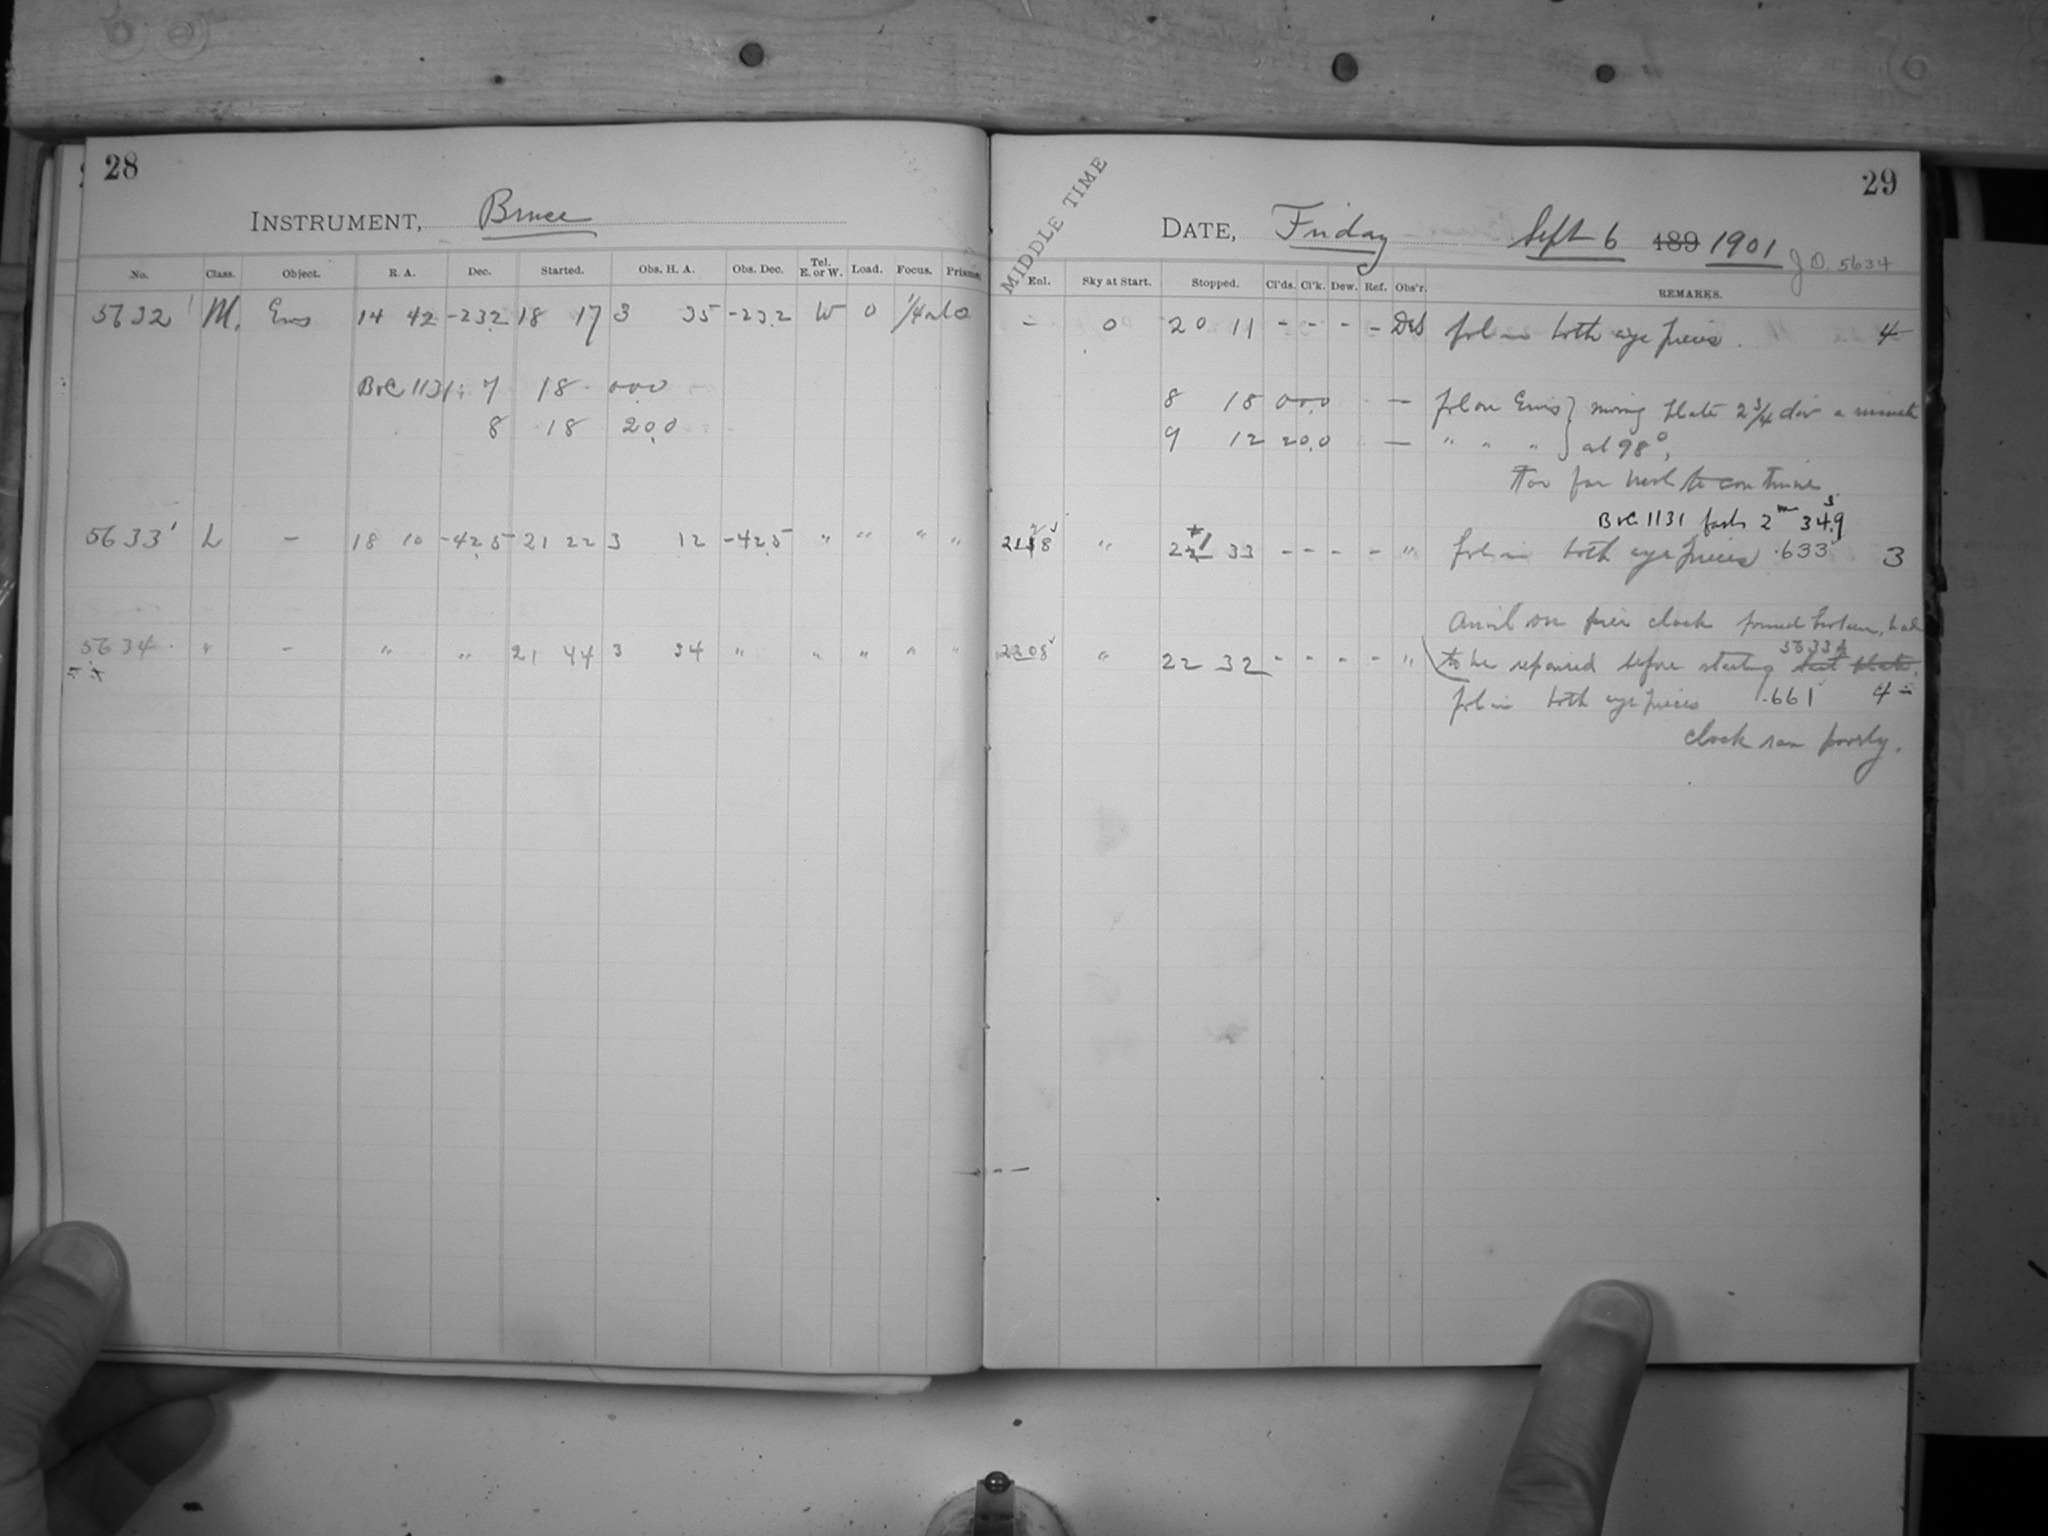 28
INSTRUMENT, Bruce
No. Class. Object. R. A. Dec. Started. Obs. H. A. Obs. Dec. Tel. E. or W. Load. Focus. Prisms.
5632 M. Eros 14 42 -23.2 18 17 3 35 -23.2 W 0
B&C 1131: 7 18 00.0
8 18 20.0
5633 L - 18 10 -42.5 21 22 3 12 -42.5 " " " "
5634 " - " " 21 44 3 34 " " " " "
29
MIDDLE TIME
DATE, Friday Sept 6 189 1901
J.D. 5634
Enl. Sky at Start. Stopped. Cl'ds. Cl'k. Dew. Ref. Obs'r. REMARKS.
- 0 20 11 - - - - fol in both eye pieces. 4
8 18 00.0 - fol on Eros } moving plate 2 3/4 div a minute
9 12 20.0 - " " " } at 98°,
Too far west to continue.
B&C 1131 fast 2m 34.9s
" 33 - - - - " fol in both eye pieces .633 3
Anvil on pier clock found broken, had
5633
2208 " 22 32 - - - - " to be repaired before starting
fol in both eye pieces .661 4
clock ran poorly.